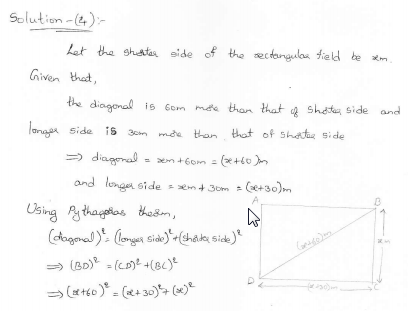 Solution-(4):-
Let the shorter side of the rectangular field be xm.
Given that,
the diagonal is 60m more than that of shorter side and
longer side is 30m more than that of shorter side
⇒ diagonal = xm+60m = (x+60)m
and longer side = xm+30m = (x+30)m
Using Pythagoras theorm,
(diagonal)² = (longer side)² + (shorter side)²
⇒ (BD)² = (CD)² + (BC)²
⇒ (x+60)² = (x+30)² + (x)²
A
B
(x+60)m
xm
D
(x+30)m
C